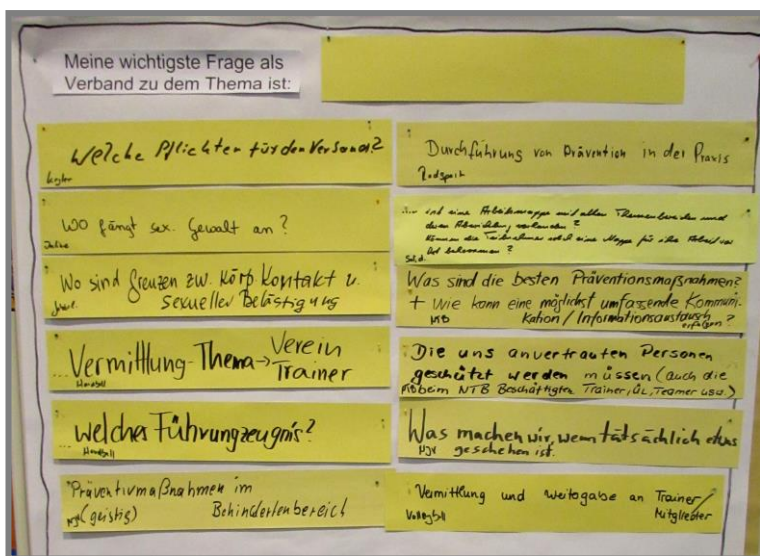 Meine wichtigste Frage als
Verband zu dem Thema ist:
Welche Pflichten für den Versand?
Wo fängt sex. Gewalt an?
Wo sind Grenzen zw. Körp. Kontakt u.
sexueller Belästigung
... Vermittlung-Thema → Verein
Trainer
Handball
... welches Führungzeugnis?
Handball
Präventivmaßnahmen im
(geistig) Behindertenbereich
Durchführung von Prävention in der Praxis
Radsport
ist eine Arbeitsmappe mit allen Themenbereichen und
deren Abarbeitung vorhanden?
Können die Teilnehmer eine Mappe für ihre Arbeit vor
Ort bekommen?
Was sind die besten Präventionsmaßnahmen?
+ Wie kann eine möglichst umfassende Kommuni-
kation / Informationsaustausch
erfolgen?
Die uns anvertrauten Personen
geschützt werden müssen (auch die
beim NTB Beschäftigten Trainer, ÜL, Teamer usw.)
Was machen wir, wenn tatsächlich etwas
geschehen ist.
NJV
Vermittlung und Weitergabe an Trainer/
Mitglieder
Volleyball